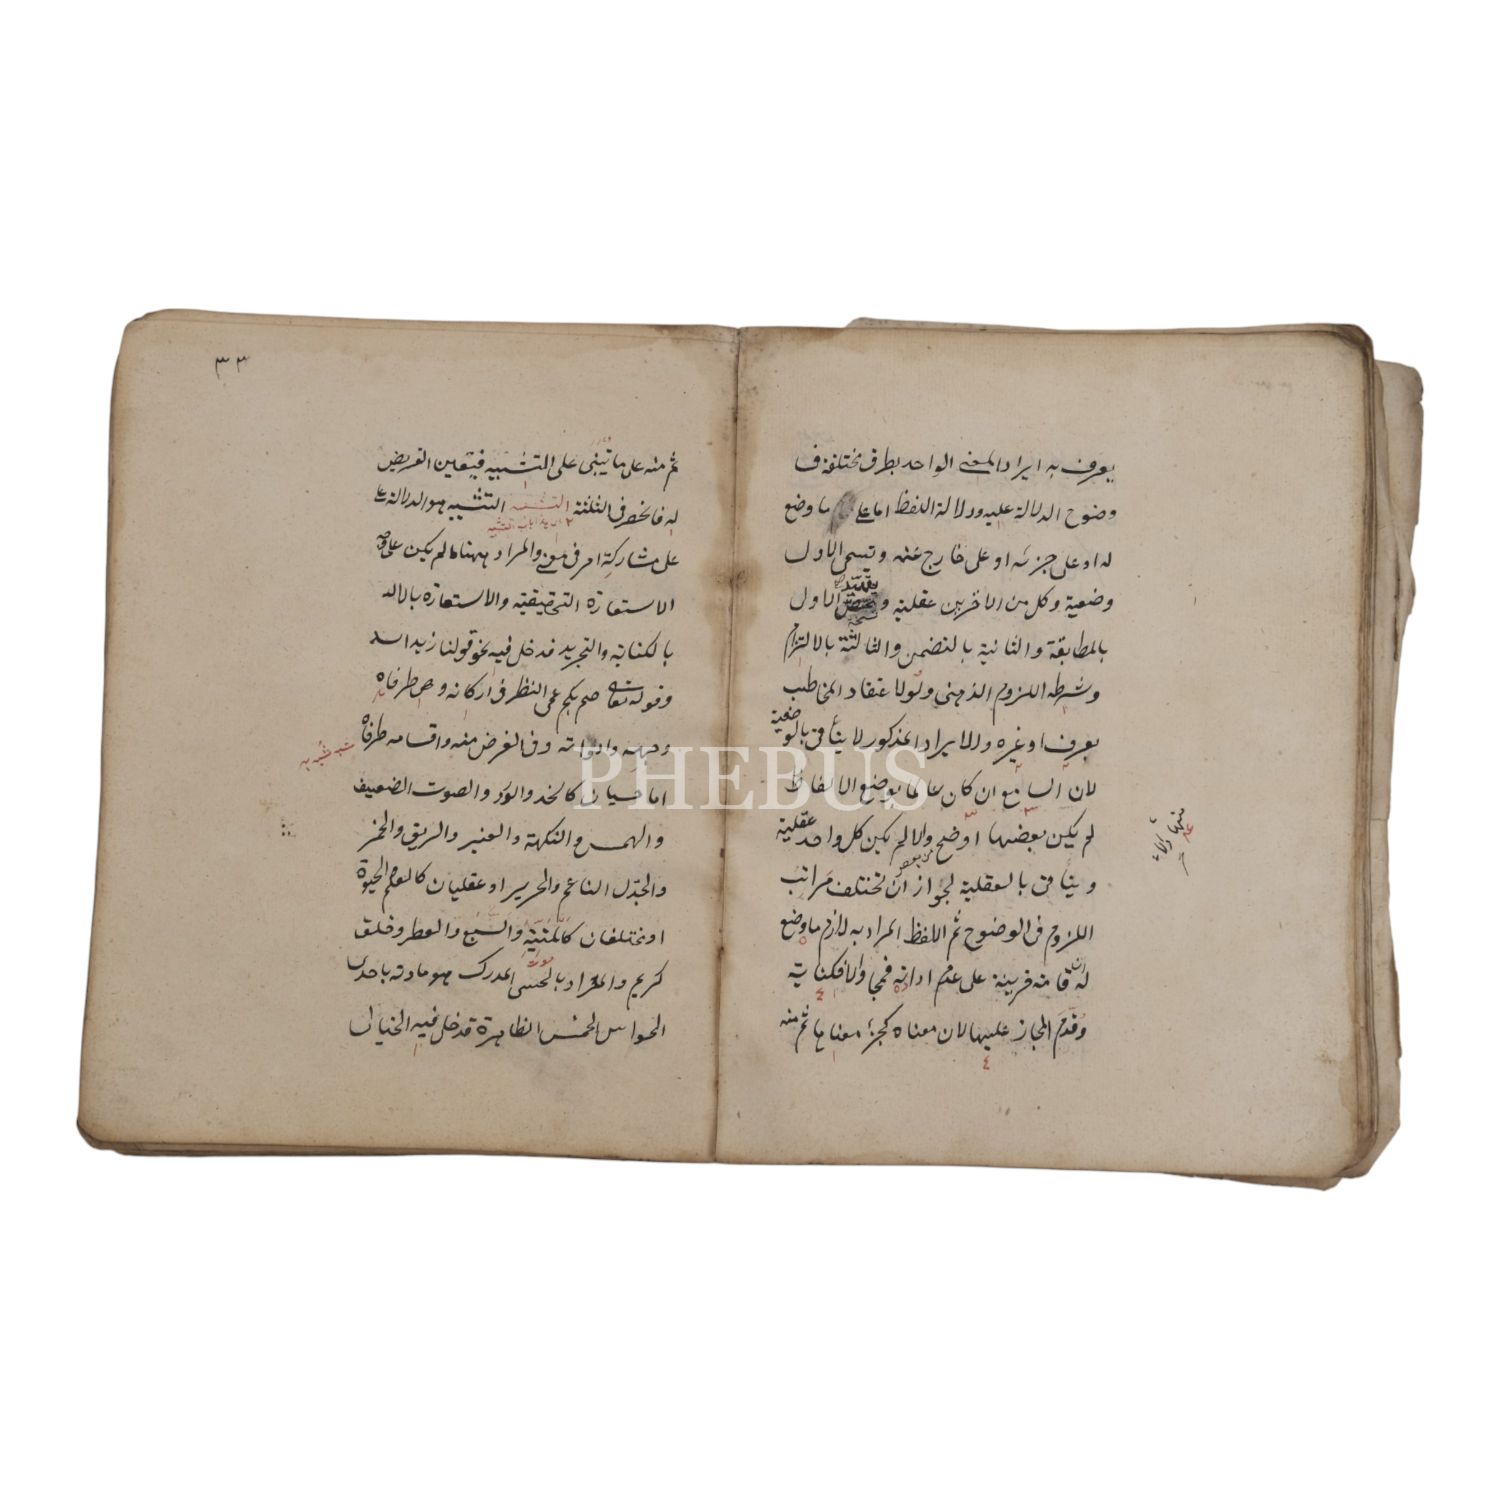 يعرف به ايراد المعنى الواحد بطرق مختلفة فى
وضوح الدلالة عليه ودلالة اللفظ اما على ما وضع
له او على جزئه او على خارج عنه وتسمى الاول
وضعية وكل من الاخريين عقلية وتقيد الاول
بالمطابقة والثانية بالتضمن والثالثة بالالتزام
وشرطه اللزوم الذهنى ولو لاعتقاد المخاطب
بعرف او غيره والايراد المذكور لا يتأتى بالوضعية
لان السامع ان كان عالما بوضع الالفاظ
لم يكن بعضها اوضح والا لم يكن كل واحد
ويتأتى بالعقلية لجواز ان تختلف مراتب
اللزوم فى الوضوح ثم اللفظ المراد به لازم ما وضع
له ان قامت قرينة على عدم ارادته فمجاز والا فكناية
وقدم المجاز عليها لان معناه كجزء معناها ثم منه
٣٣
ثم منه على ما تبنى على التشبيه فيتعين التعريض
له فانحصر فى الثلثة التشبيه التشبيه هو الدلالة على
على مشاركة امر فى معنى والمراد ههنا ما لم يكن على وجه
الاستعارة التحقيقية والاستعارة بالال
بالكناية والتجريد فدخل فيه نحو قولنا زيد اسد
وقوله تعالى صم بكم عمى النظر فى اركانه وهى طرفاه
ووجهه وادواته وفى الغرض منه واقسامه طرفاه
اما حسيان كالخد والورد والصوت الضعيف
والهمس والنكهة والعنبر والريق والخمر
والجلد الناعم والحرير او عقليان كالعلم والحيوة
او مختلفان كالمنية والسبع والعطر وخلق
كريم والمراد بالحسى المدرك هو مادته باحدى
الحواس الخمس الظاهرة فدخل فيه الخيال
PHEBUS